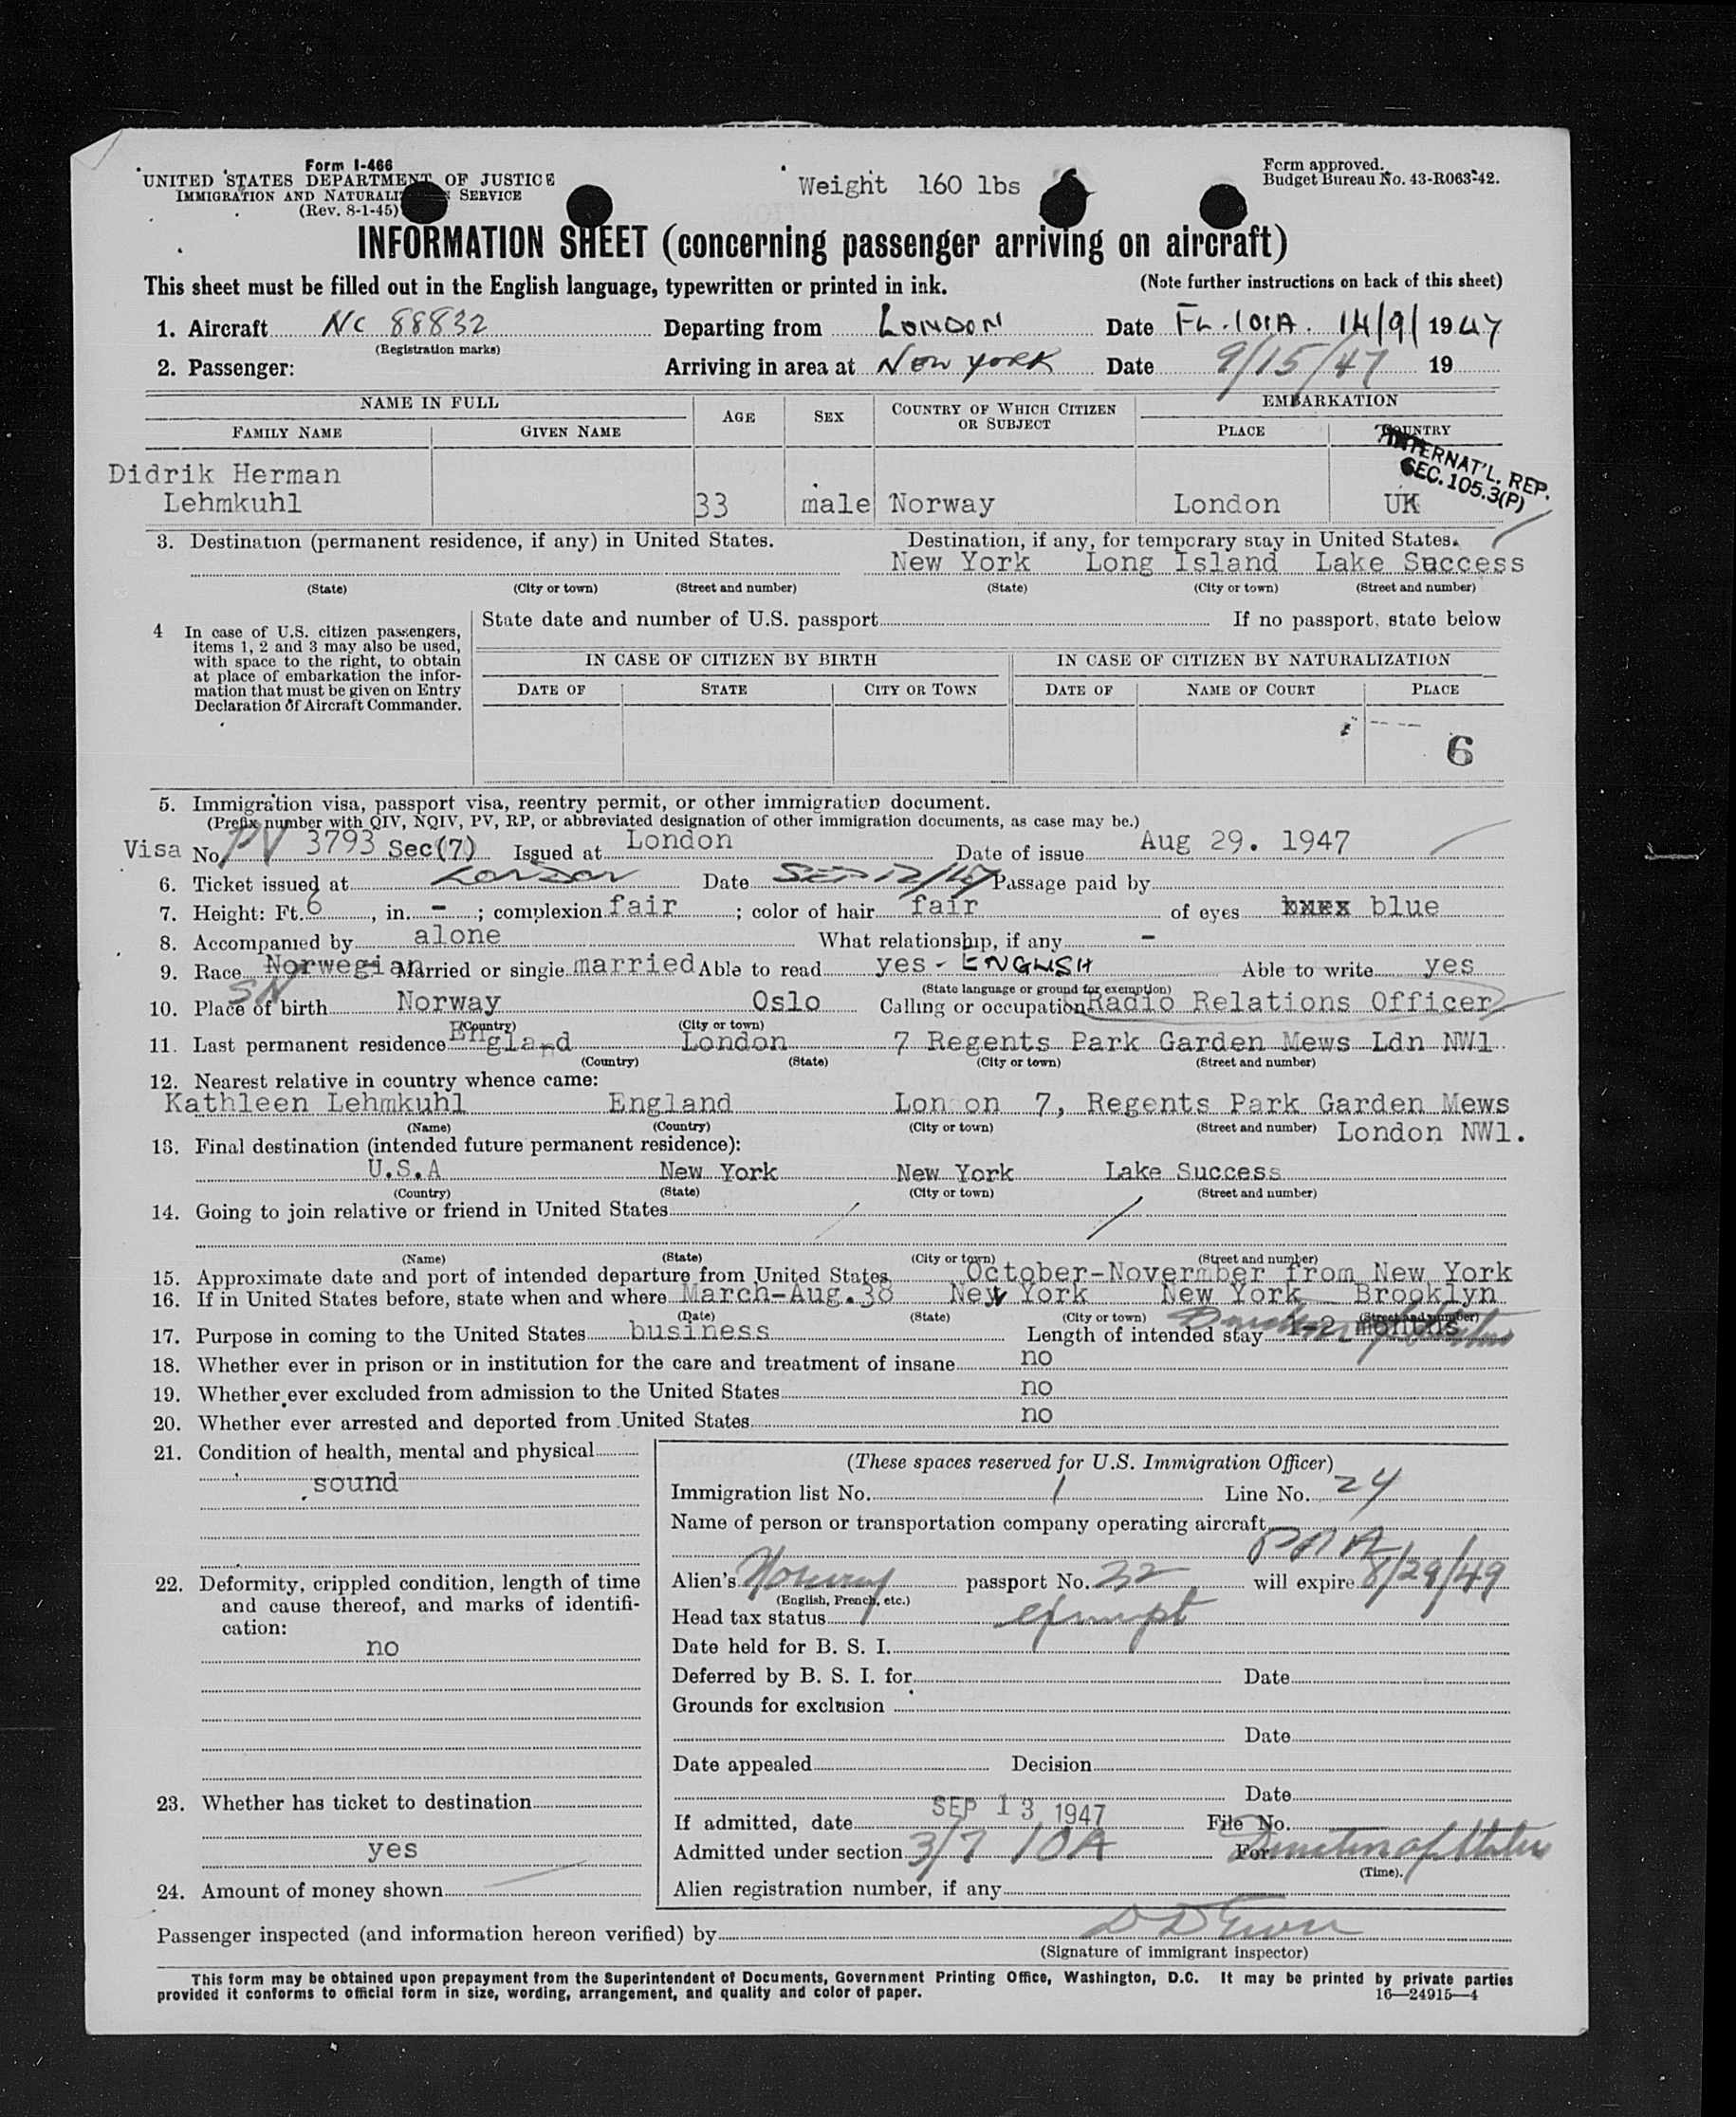 Form I-466
UNITED STATES DEPARTMENT OF JUSTICE
IMMIGRATION AND NATURALI N SERVICE
(Rev. 8-1-45)
Weight 160 lbs
Form approved.
Budget Bureau No. 43-R063-42.
INFORMATION SHEET (concerning passenger arriving on aircraft)
This sheet must be filled out in the English language, typewritten or printed in ink. (Note further instructions on back of this sheet)
1. Aircraft NC 88832 Departing from LONDON Date FL. 101A. 14/9/ 1947
(Registration marks)
2. Passenger: Arriving in area at NEW YORK Date 9/15/47 19
NAME IN FULL AGE SEX COUNTRY OF WHICH CITIZEN OR SUBJECT EMBARKATION
FAMILY NAME GIVEN NAME PLACE COUNTRY
INTERNAT'L. REP.
SEC. 105.3(P)
Didrik Herman
Lehmkuhl 33 male Norway London UK
3. Destination (permanent residence, if any) in United States. Destination, if any, for temporary stay in United States.
New York Long Island Lake Success
(State) (City or town) (Street and number) (State) (City or town) (Street and number)
4 In case of U.S. citizen passengers, items 1, 2 and 3 may also be used, with space to the right, to obtain at place of embarkation the information that must be given on Entry Declaration of Aircraft Commander.
State date and number of U.S. passport If no passport, state below
IN CASE OF CITIZEN BY BIRTH IN CASE OF CITIZEN BY NATURALIZATION
DATE OF STATE CITY OR TOWN DATE OF NAME OF COURT PLACE
6
5. Immigration visa, passport visa, reentry permit, or other immigration document.
(Prefix number with QIV, NQIV, PV, RP, or abbreviated designation of other immigration documents, as case may be.)
Visa No. PV 3793 Sec(7) Issued at London Date of issue Aug 29. 1947
6. Ticket issued at London Date SEP 12/47 Passage paid by
7. Height: Ft. 6, in. - ; complexion fair ; color of hair fair of eyes blue
8. Accompanied by alone What relationship, if any -
9. Race Norwegian Married or single married Able to read yes - ENGLISH Able to write yes
SN
(State language or ground for exemption)
10. Place of birth Norway Oslo Calling or occupation Radio Relations Officer
(Country) (City or town)
11. Last permanent residence England London 7 Regents Park Garden Mews Ldn NW1.
(Country) (State) (City or town) (Street and number)
12. Nearest relative in country whence came:
Kathleen Lehmkuhl England Lon on 7, Regents Park Garden Mews
(Name) (Country) (City or town) (Street and number) London NW1.
13. Final destination (intended future permanent residence):
U.S.A New York New York Lake Success
(Country) (State) (City or town) (Street and number)
14. Going to join relative or friend in United States
(Name) (State) (City or town) (Street and number)
15. Approximate date and port of intended departure from United States October-Novermber from New York
16. If in United States before, state when and where March-Aug.38 New York New York Brooklyn
(Date) (State) (City or town) (Street and number)
17. Purpose in coming to the United States business Length of intended stay 1-2 months
18. Whether ever in prison or in institution for the care and treatment of insane no
19. Whether ever excluded from admission to the United States no
20. Whether ever arrested and deported from United States no
21. Condition of health, mental and physical
sound
(These spaces reserved for U.S. Immigration Officer)
Immigration list No. 1 Line No. 24
Name of person or transportation company operating aircraft
PAA
22. Deformity, crippled condition, length of time and cause thereof, and marks of identification:
no
Alien's Norway passport No. 32 will expire 8/29/49
(English, French, etc.)
Head tax status exempt
Date held for B. S. I.
Deferred by B. S. I. for Date
Grounds for exclusion
Date
Date appealed Decision
Date
23. Whether has ticket to destination
yes
If admitted, date SEP 13 1947 File No.
Admitted under section 3/7 10A For Duration of Status
(Time)
24. Amount of money shown
Alien registration number, if any
Passenger inspected (and information hereon verified) by
(Signature of immigrant inspector)
This form may be obtained upon prepayment from the Superintendent of Documents, Government Printing Office, Washington, D.C. It may be printed by private parties
provided it conforms to official form in size, wording, arrangement, and quality and color of paper. 16—24915—4